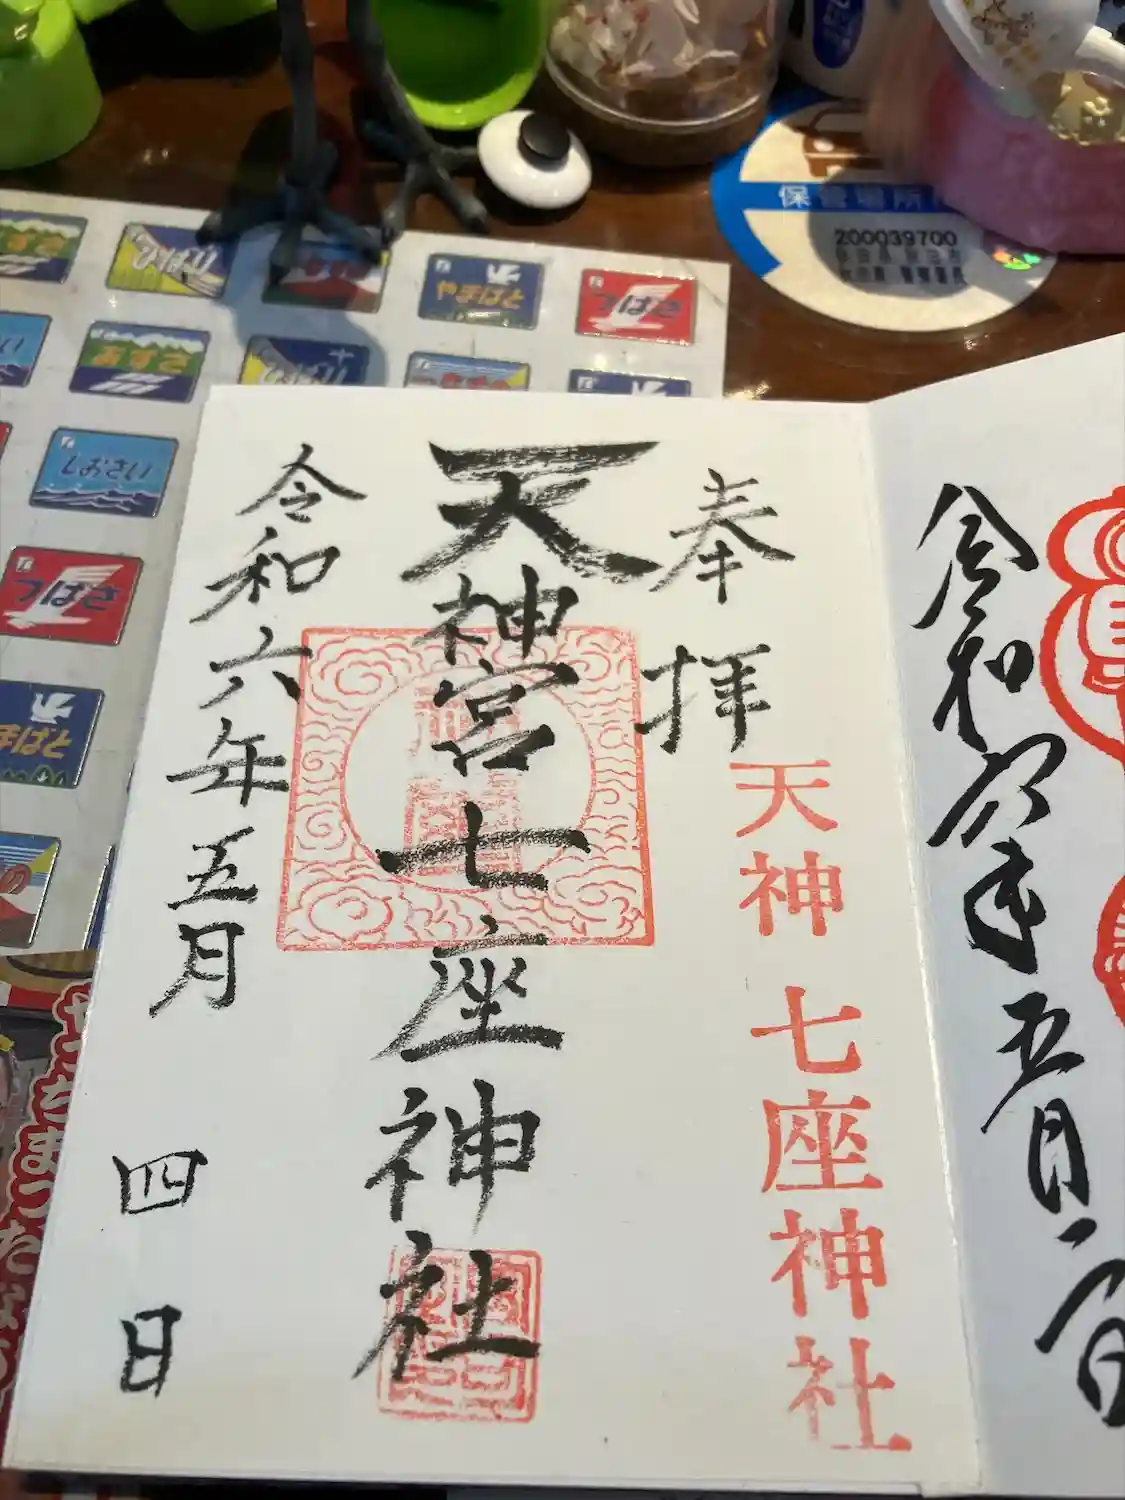 保管場所
200039700
あずさ
やまばと
つばさ
あずさ
しおさい
つばさ
やまばと
の
奉拝
天神七座神社
天神宮七座神社
令和六年五月四日
令和六年五月一日